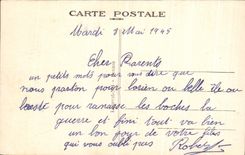 CARTE POSTALE
Mardi 8 Mai 1945
Cher Parents
un petits mots pour vous dire que
nous parton pour Louen ou belle ile au
pour ramasser les boches la
guerre et fini tout va bien
un bon pour de votre fils
qui vous oubli pas
Robert